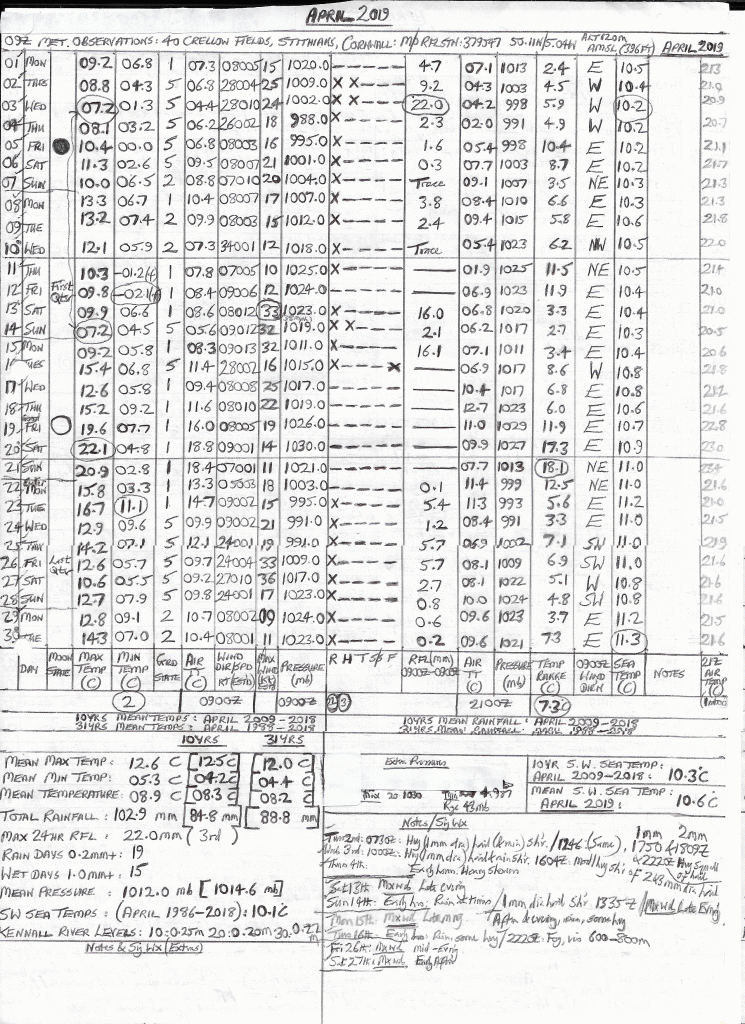 APRIL 2019
09Z MET. OBSERVATIONS: 40 CRELLOW FIELDS, STITHIANS, CORNWALL: M/O RFLSTN: 379547 50.11N/5.04W ALT 120M AMSL (396Ft) APRIL 2019
01 MON 09.2 06.8 1 07.3 08005 15 1020.0 4.7 07.1 1013 2.4 E 10.5 21.3
02 TUES 08.8 04.3 5 06.8 28004 25 1009.0 X X 9.2 04.3 1003 4.5 W 10.4 21.0
03 WED 07.2 01.3 5 04.4 28010 24 1002.0 X X 22.0 04.2 998 5.9 W 10.2 20.9
04 THU 08.1 03.2 5 06.2 26002 18 988.0 X 2.3 02.0 991 4.9 W 10.2 20.7
05 FRI 10.4 00.0 5 06.8 08003 16 995.0 X 1.6 05.4 998 10.4 E 10.2 21.1
06 SAT 11.3 02.6 5 09.5 08007 21 1001.0 X 0.3 07.7 1003 8.7 E 10.2 21.7
07 SUN 10.0 06.5 2 08.8 07010 20 1004.0 X Trace 09.1 1007 3.5 NE 10.3 21.3
08 MON 13.3 06.7 1 10.4 08007 17 1007.0 X 3.8 08.4 1010 6.6 E 10.3 21.3
09 TUE 13.2 07.4 2 09.9 08003 15 1012.0 X 2.4 09.4 1015 5.8 E 10.6 21.8
10 WED 12.1 05.9 2 07.3 34001 12 1018.0 X Trace 05.4 1023 6.2 NW 10.5 22.0
11 THU 10.3 -01.2 1 07.8 07005 10 1025.0 X 01.9 1025 11.5 NE 10.5 21.4
12 FRI First Qty 09.8 -02.1 1 08.4 09006 12 1024.0 06.9 1023 11.9 E 10.4 21.0
13 SAT 09.9 06.6 1 08.6 08012 33 1023.0 X 16.0 06.8 1020 3.3 E 10.4 21.0
14 SUN 07.2 04.5 5 05.6 09012 32 1019.0 X X 2.1 06.2 1017 2.7 E 10.3 20.5
15 MON 09.2 05.8 1 08.3 09013 32 1011.0 X 16.1 07.1 1011 3.4 E 10.4 20.6
16 TUES 15.4 06.8 5 11.4 28002 16 1015.0 X X 06.9 1017 8.6 W 10.8 21.8
17 WED 12.6 05.8 1 09.4 08008 25 1017.0 10.4 1017 6.8 E 10.8 21.2
18 THU 15.2 09.2 1 11.6 08010 22 1019.0 12.7 1023 6.0 E 10.6 21.6
19 FRI 19.6 07.7 1 16.0 08005 19 1026.0 11.0 1029 11.9 E 10.7 22.8
20 SAT 22.1 04.8 1 18.8 09001 14 1030.0 09.9 1027 17.3 E 10.9 23.0
21 SUN 20.9 02.8 1 18.4 07001 11 1021.0 07.7 1013 18.1 NE 11.0 23.4
22 MON 15.8 03.3 1 13.3 05503 18 1003.0 0.1 11.4 999 12.5 NE 11.0 21.6
23 TUE 16.7 11.1 1 14.7 09002 15 995.0 X 5.4 11.3 993 5.6 E 11.2 21.0
24 WED 12.9 09.6 5 09.9 09002 21 991.0 X 1.2 08.4 991 3.3 E 11.0 21.5
25 THU 14.2 07.1 5 12.1 24001 19 991.0 X 5.7 06.9 1002 7.1 SW 11.0 21.9
26 FRI Last Qty 12.6 05.7 5 09.7 24004 33 1009.0 X 5.7 08.1 1009 6.9 SW 11.0 21.6
27 SAT 10.6 05.5 5 09.2 27010 36 1017.0 X 2.7 08.1 1022 5.1 W 10.8 21.6
28 SUN 12.7 07.9 5 09.8 24008 17 1023.0 X 0.8 10.0 1024 4.8 SW 10.8 21.6
29 MON 12.8 09.1 2 10.7 08002 09 1024.0 X 0.6 09.6 1023 3.7 E 11.2 21.6
30 TUE 14.3 07.0 2 10.4 08001 11 1023.0 X 0.2 09.6 1021 7.3 E 11.3 21.6
DAY MOON STATE MAX TEMP (C) MIN TEMP (C) GRD STATE AIR TT (C) WIND DIR/SPD RT (KTS) MAX WIND (KT) PRESSURE (mb) R H T S F RFL (mm) 0900Z-0900Z AIR TT (C) PRESSURE (mb) TEMP RANGE (C) 0900Z WIND DIRN SEA TEMP (C) NOTES 21Z AIR TEMP (C)
2 0900Z 0900Z 2100Z 7.3C
10YRS MEAN TEMPS: APRIL 2009-2018 10YRS MEAN RAINFALL: APRIL 2009-2018
31YRS MEAN TEMPS: APRIL 1988-2018 31YRS MEAN RAINFALL: APRIL 1988-2018
10YRS 31YRS
MEAN MAX TEMP: 12.6 C [12.5C] [12.0 C]
MEAN MIN TEMP: 05.3 C [04.2C] [04.4 C]
MEAN TEMPERATURE: 08.9 C [08.3 C] [08.2 C]
TOTAL RAINFALL: 102.9 mm [84.8 mm] [88.8 mm]
MAX 24HR RFL: 22.0mm (3rd)
RAIN DAYS 0.2mm+: 19
WET DAYS 1.0mm+: 15
MEAN PRESSURE: 1012.0 mb [1014.6 mb]
SW SEA TEMPS: (APRIL 1986-2018): 10.1C
KENNALL RIVER LEVELS: 10: 0.25m 20: 0.20m: 30: 0.22m
Notes & Sig Wx (Extras)
Extra Pressures
Max 20 1030 4.987
Rge 43mb
10YR S.W. SEA TEMP: APRIL 2009-2018: 10.3C
MEAN S.W. SEA TEMP: APRIL 2019: 10.6C
Notes/Sig Wx
Tues 2nd: 0730Z: Hvy (1mm dia) hail (& rain) shr. / 1246 (Same), 1750 & 1809Z
1mm 2mm
Wed 3rd: 1007Z: Hvy (1mm dia) hail & rain shr. 1604Z: mod/hvy shr of 2&3mm dia hail
Thurs 4th: Early hours: Heavy showers
Sat 13th Mx wd Late evening
Sun 14th: Early hrs: Rain at times / 1mm dia hail Shr 1335Z / Mx wd Late Evng
Mon 15th: Mx wd Late mng Aftn & evening, rain, some hvy
Tues 16th: Early hrs: Rain, some hvy / 2220Z: Fog, vis 600-800m
Fri 26th: Mx wd mid-evng
Sat 27th: Mx wd Early Aftn